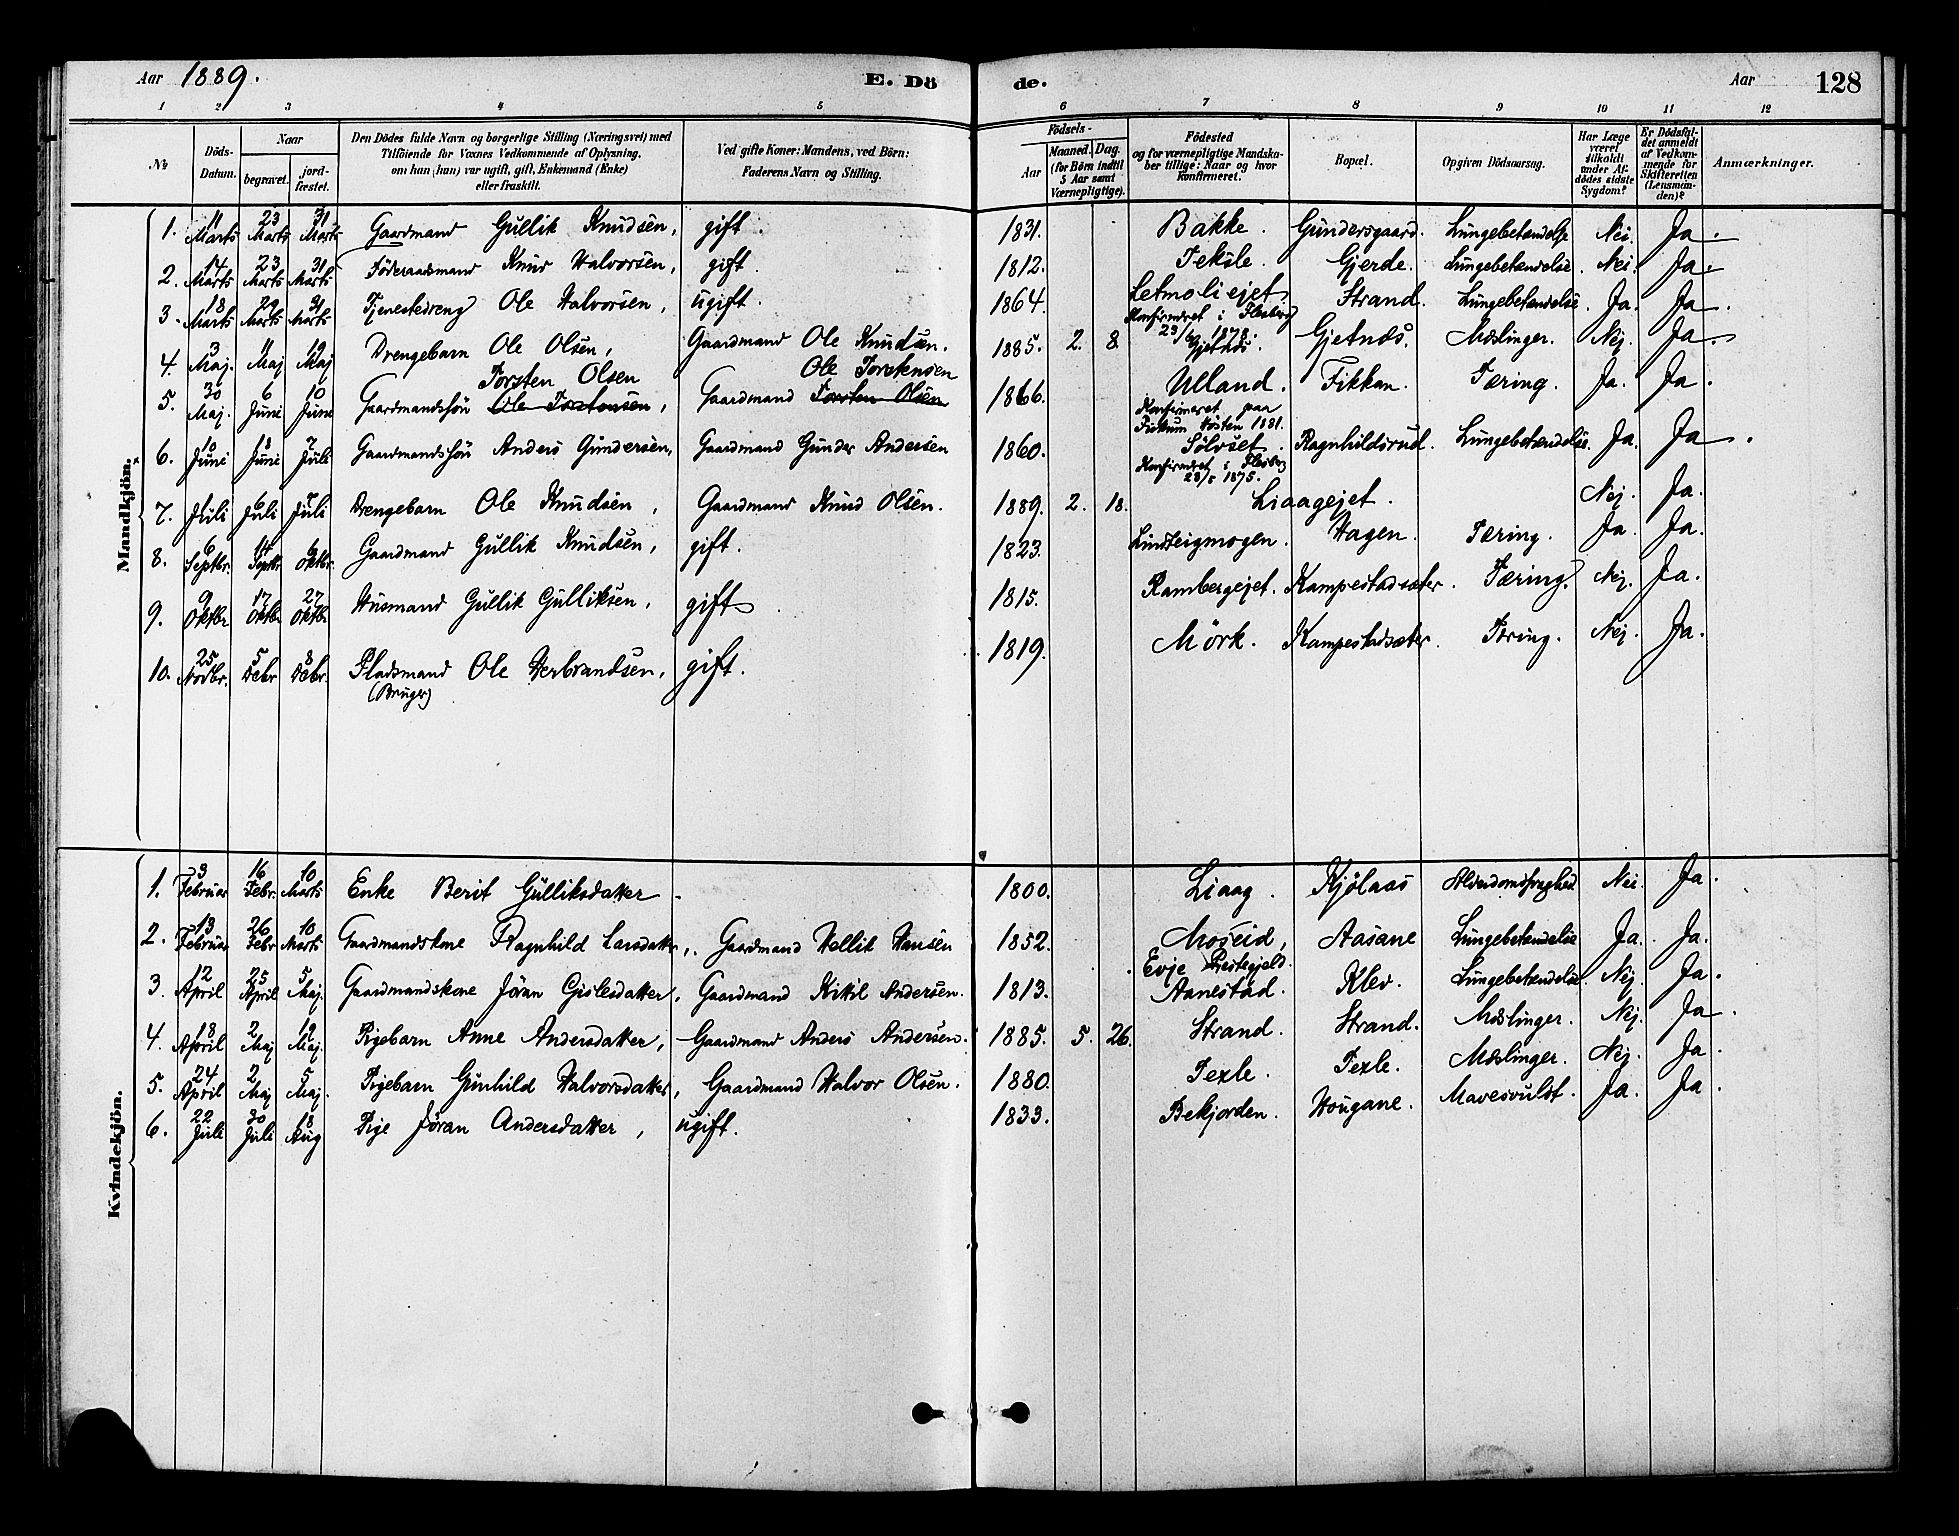 Aar 1889. E. Dö de. Aar 128
1 2 3 4 5 6 7 8 9 10 11 12
No
Döds-Datum.
Naar begravet. jord-fæstet.
Den Dödes fulde Navn og borgerlige Stilling (Næringsvei) med Tilföiende for Voxnes Vedkommende af Oplysning, om han (hun) var ugift, gift, Enkemand (Enke) eller fraskilt.
Ved gifte Koner: Mandens, ved Börn: Faderens Navn og Stilling.
Födsels- Aar Maaned. Dag. (for Börn indtil 5 Aar samt Værnepligtige).
Födested og for værnepligtige Mandskaber tillige: Naar og hvor Konfirmeret.
Bopæl.
Opgiven Dödsaarsag.
Har Læge været tilkaldt under Afdödes sidste Sygdom?
Er Dödsfaldet anmeldt af Vedkommende for Skifteretten (Lensmanden)?
Anmærkninger.
Mandkjön.
1. 11 Marts 23 Marts 31 Marts Gaardmand Gullik Knudsen, gift. 1831. Bakke. Gundersgaard. Lungebetændelse Nei. Ja.
2. 14 Marts 23 Marts 31 Marts Föderaadsmand Knud Halvorsen, gift. 1812. Teksle. Gjerde. Lungebetændelse. Nei. Ja.
3. 18 Marts 29 Marts 31 Marts Tjenestedreng Ole Halvorsen, ugift. 1864. Letmoliejet. Strand. Lungebetændelse. Ja. Ja.
Konfirmeret i Flesberg
1878.
4. 3 Maj. 11 Maj 19 Maj Drengebarn Ole Olsen, Gaardmand Ole Knudsen. 1885. 2. 8. Gjetnds. Gjetnds. Mæslinger. Nej. Ja.
Torsten Olsen Ole Torstensen
5. 30 Maj. 6 Juni 10 Juni Gaardmandssön Ole Torstensen, Gaardmand Torsten Olsen 1866. Ulland. Fikkan. Tæring. Ja. Ja.
Konfirmeret paa
Fiskum Hösten 1881.
6. 10 Juni 18 Juni 7 Juli Gaardmandssön Anders Gundersen, Gaardmand Gunder Andersen 1860. Sölvset. Ragnhildsrud. Lungebetændelse. Ja. Ja.
Konfirmeret i Flesberg
1875.
7. Juli 6 Juli 7 Juli Drengebarn Ole Knudsen, Gaardmand Knud Olsen. 1889. 2. 18. Liaagejet. Nej. Ja.
8. 6 Septbr. 14 Septbr 6 Oktbr. Gaardmand Gullik Knudsen, gift. 1823. Lundteigmogen. Hagen. Tæring. Ja. Ja.
9. 9 Oktbr 17 Oktbr 27 Oktbr Husmand Gullik Gulliksen, gift. 1815. Rambergejet. Kampestadsæter. Tæring. Nej. Ja.
10. 25 Novbr. 5 Debr 8 Debr. Pladsmand Ole Herbrandsen, gift. 1819. Mörk. Kampestadsæter. Tæring. Nej. Ja.
(Bruger)
Kvindekjön.
1. 3 Februar 16 Febr. 10 Marts Enke Berit Gulliksdatter. 1800. Liaag. Kjölaas Alderdomssvaghed Nei. Ja.
2. 13 Februar 26 Febr 10 Marts Gaardmandskone Ragnhild Larsdatter, Gaardmand Hellik Hansen 1852. Moseid, Aasane Lungebetændelse Ja. Ja.
Evje Prestegjeld.
3. 12 April 25 April 5 Maj. Gaardmandskone Jöran Gislesdatter, Gaardmand Kittil Andersen. 1813. Aanestad. Klev. Lungebetændelse. Nej. Ja.
4. 18 April 2 Maj 19 Maj. Pigebarn Anne Andersdatter, Gaardmand Anders Andersen. 1885. 5. 26. Strand. Strand. Mæslinger. Nej. Ja.
5. 24 April 2 Maj 5 Maj. Pigebarn Gunhild Halvorsdatter, Gaardmand Halvor Olsen. 1880. Texle. Texle. Mæslinger. Nej. Ja.
6. 22 Juli 30 Juli 18 Aug Pige Jöran Andersdatter, ugift. 1833. Bekjorden. Hougane. Mavesvulst. Ja. Ja.